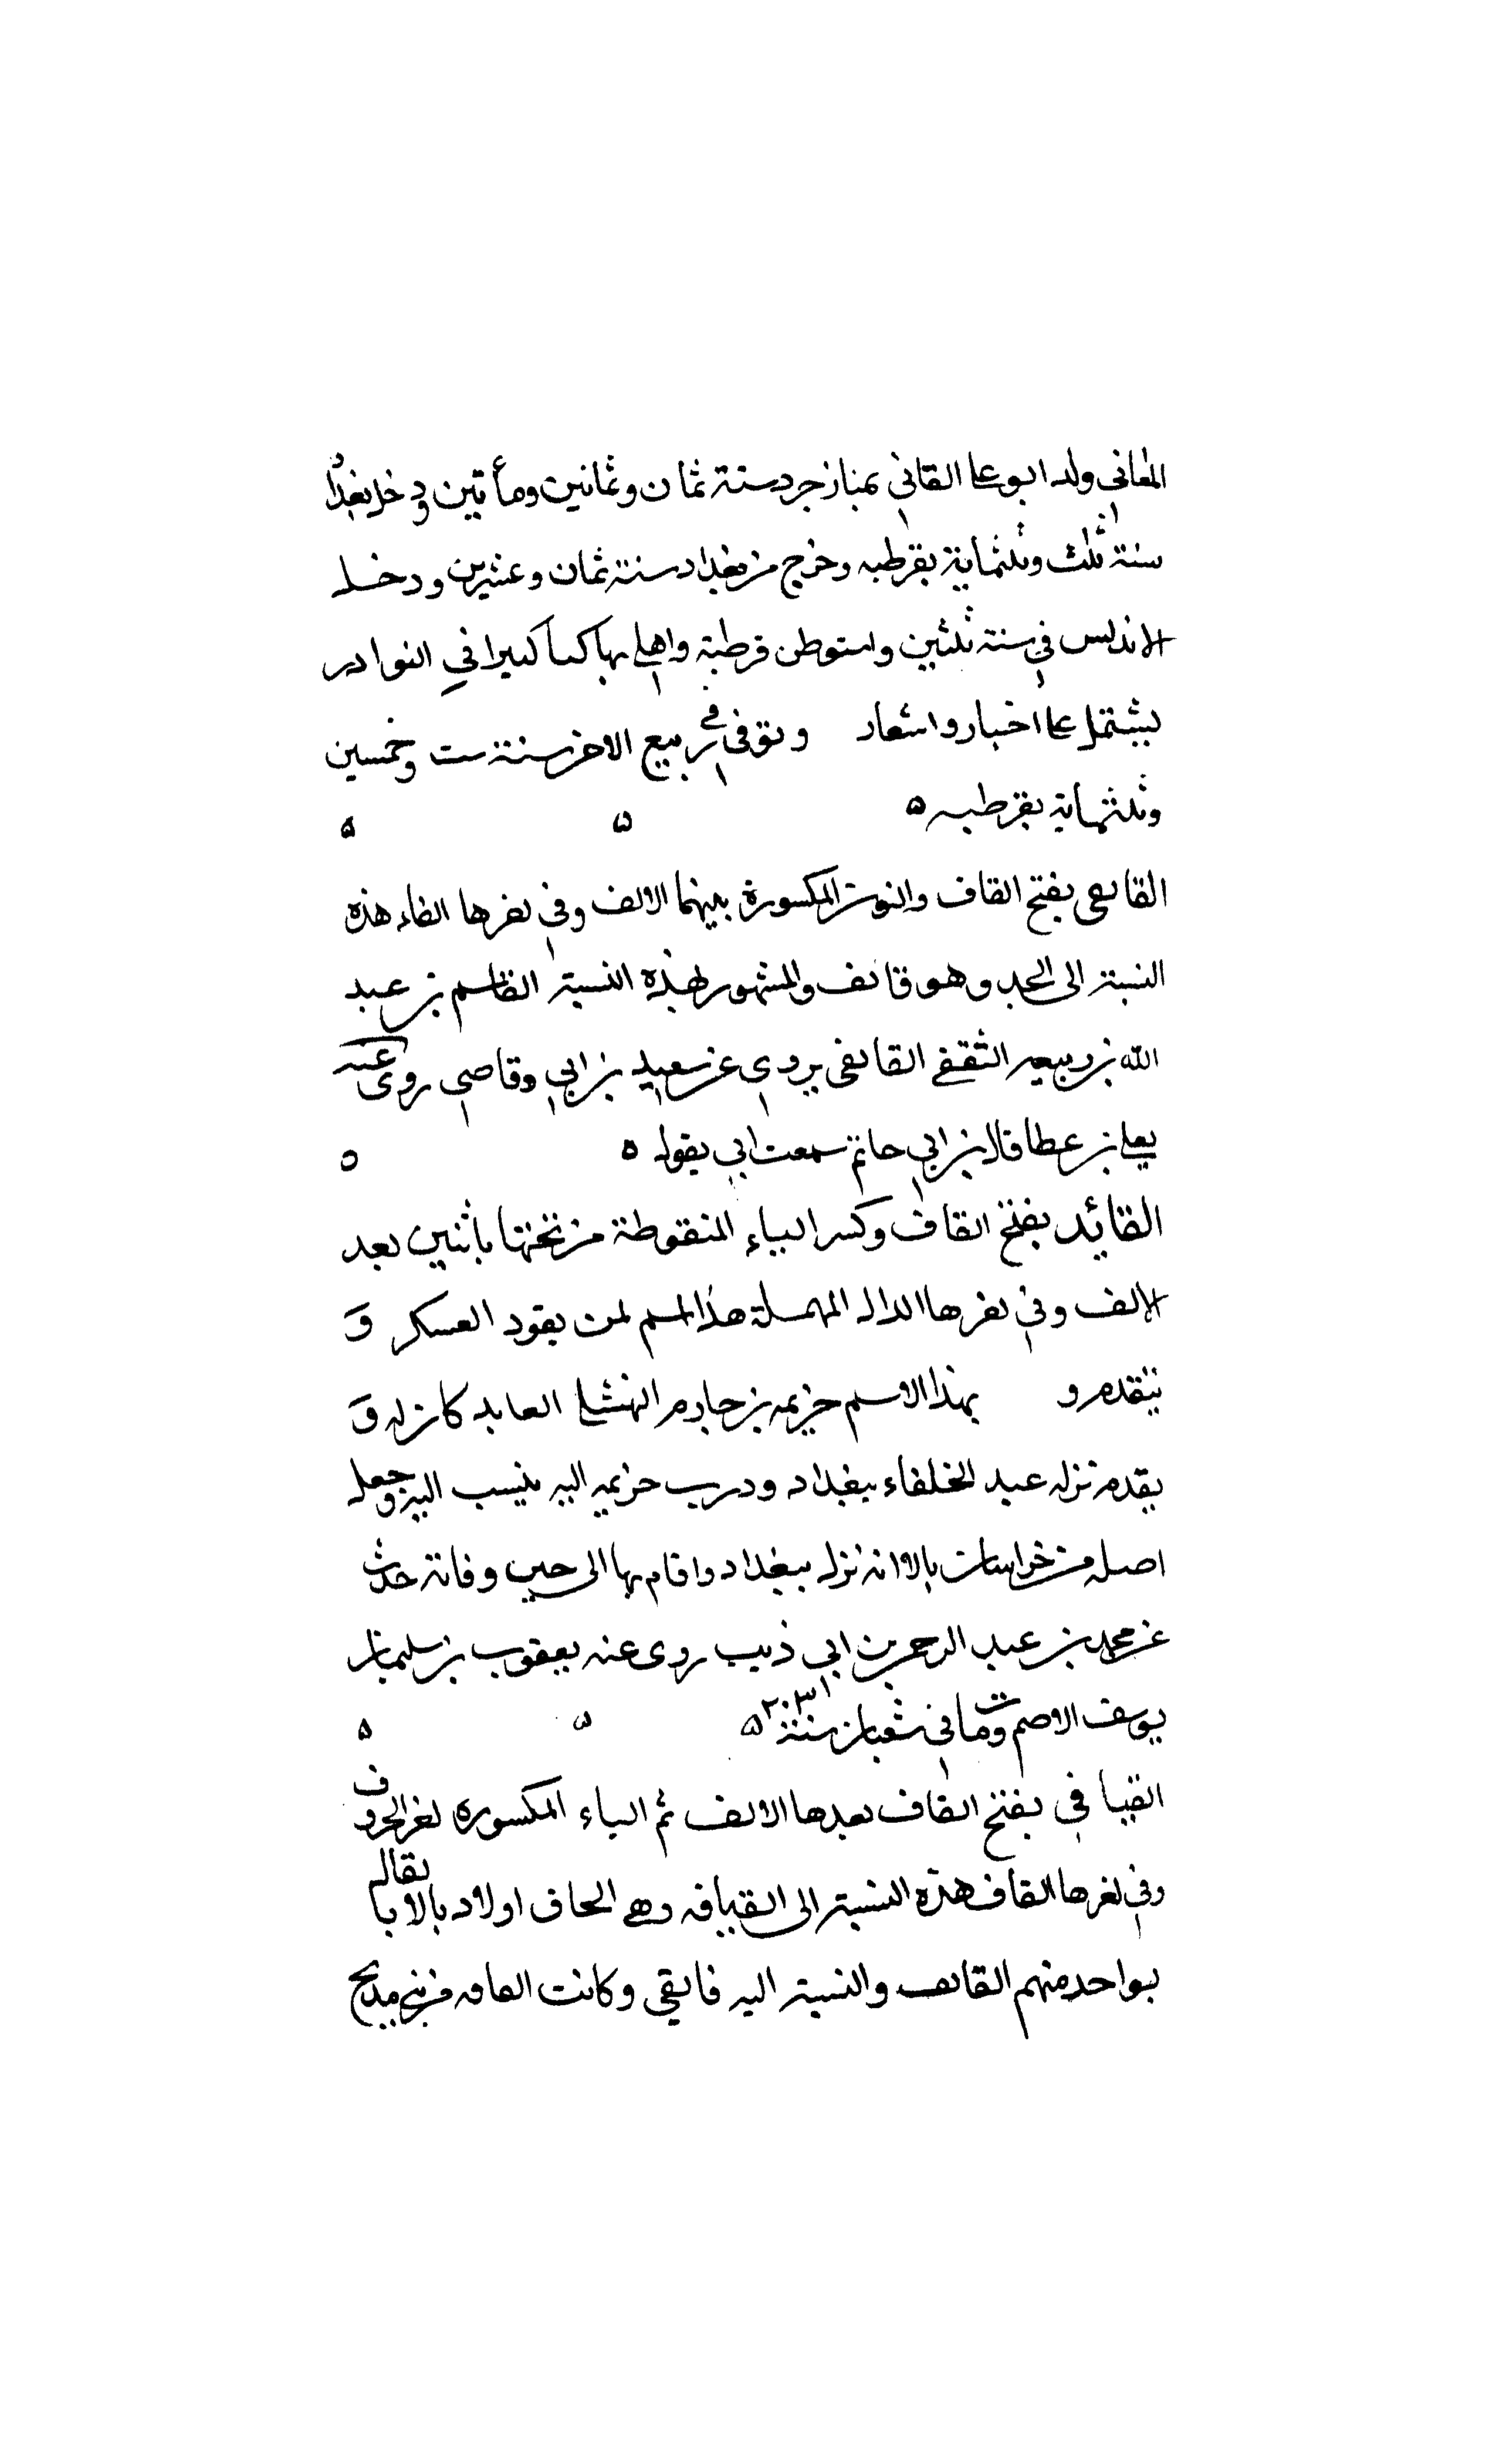 المعاني ولد ابو على القاني بمنازجرد سنة ثمان وثمانين ومأتين ودخل بغداد
سنة ثلث وثلثماية بقرطبه وخرج من بغداد سنة ثمان وعشرين ودخل
الاندلس في سنة ثلثين واستوطن قرطبة واملى بها كتابا كبيرا في النوادر
يشتمل على اخبار واشعار وتوفى في ربيع الاخر سنة ست وخمسين
وثلثماية بقرطبه ٥ ٥ ٥
القانفى بفتح القاف والنون المكسورة بينهما الالف وفي اخرها الفاء هذه
النسبة الى الجد وهو قانف والمشهور بهذه النسبة القاسم بن عبد
الله بن ربيعه الثقفي القانفى يروي عن سعيد بن ابي وقاص روى عنه
يعلى بن عطا قال ابن ابي حاتم سمعت ابي يقوله ٥ ٥
القائد بفتح القاف وكسر الياء المنقوطة من تحتها باثنين بعد
الالف وفي اخرها الدال المهملة هذا اسم لمن يقود العسكر و
يتقدم و بهذا الاسم خزيمه بن خازم النهشلي العابد كان له و
يقدم نزله عبد الخلفاء ببغداد ودرب خزيمه اليه ينسب اليه وجعل
اصله من خراسان بالا انه نزل ببغداد واقام بها الى حين وفاته حدث
عن محمد بن عبد الرحمن بن ابي ذيب روى عنه يعقوب بن سليمان
يوسف الاصم ومات في شعبان سنة ٢٠٣ ٥ ٥ ٥
القيافي بفتح القاف بعدها الالف ثم الياء المكسوره اخر الحروف
وفي اخرها القاف هذه النسبة الى القيافه وهي الحاق اولاد بالابا يقال
بواحد منهم القايف والنسبة اليه قايفي وكانت القافه من بني مدلج